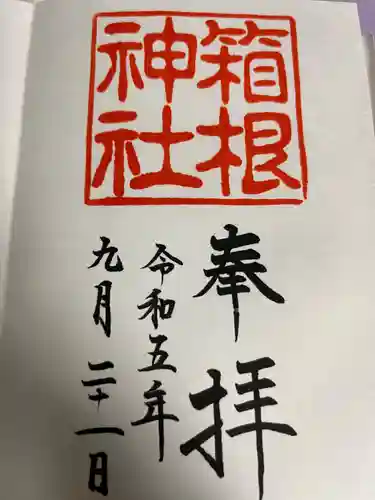 箱根
神社
奉拝
令和五年
九月二十一日